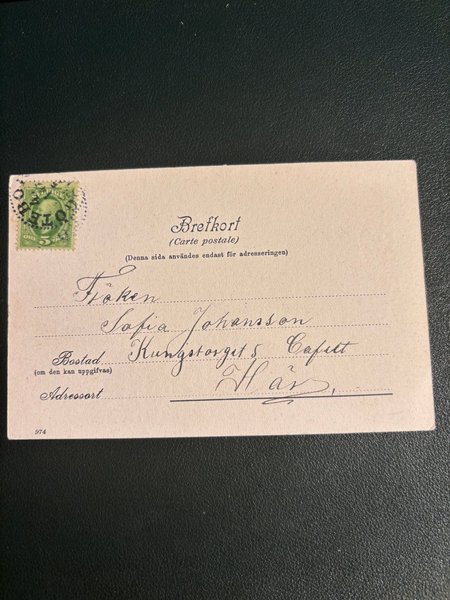 GÖTEBO
5
Brefkort
(Carte postale)
(Denna sida användes endast för adresseringen)
Fröken
Sofia Johansson
Bostad Kungstorget 8 Caféet
(om den kan uppgifvas)
Adressort Här,
974